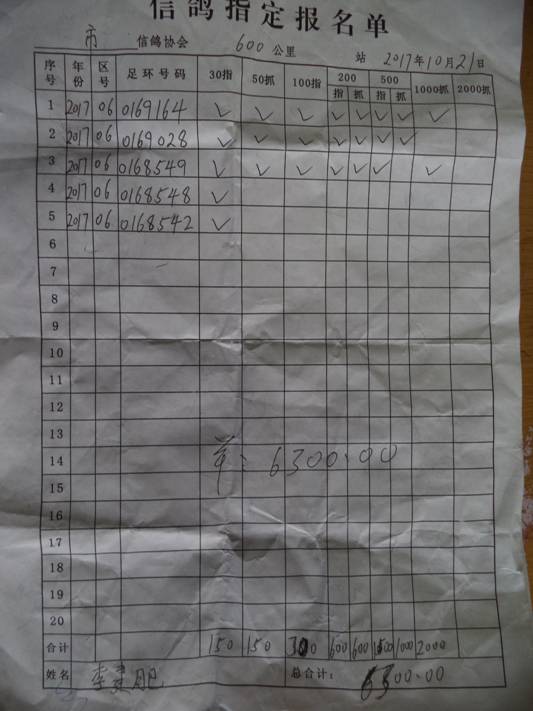 信鸽指定报名单
市 信鸽协会 600 公里 站 2017年10月21日
序号 年份 区号 足环号码 30指 50抓 100指 200 指 抓 500 指 抓 1000抓 2000抓
1 2017 06 0169164 ✓ ✓ ✓ ✓ ✓ ✓ ✓ ✓
2 2017 06 0169028 ✓ ✓ ✓ ✓ ✓ ✓ ✓
3 2017 06 0168549 ✓ ✓ ✓ ✓ ✓ ✓ ✓
4 2017 06 0168548 ✓
5 2017 06 0168542 ✓
6
7
8
9
10
11
12
13
14 : 6300.00
15
16
17
18
19
20
合计 150 150 300 600 600 1500 1000 2000
姓名 李 总合计: 6300.00